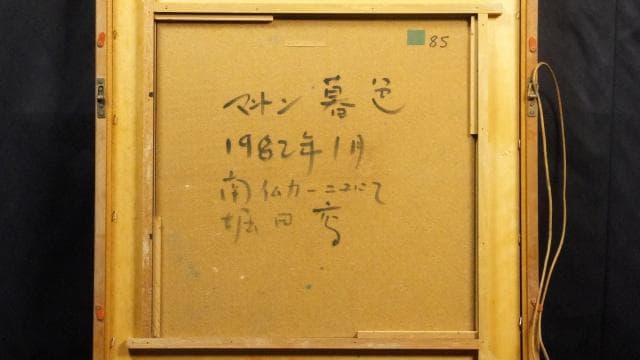 85
マントン 暮色
1982年1月
南仏カーニユにて
堀田